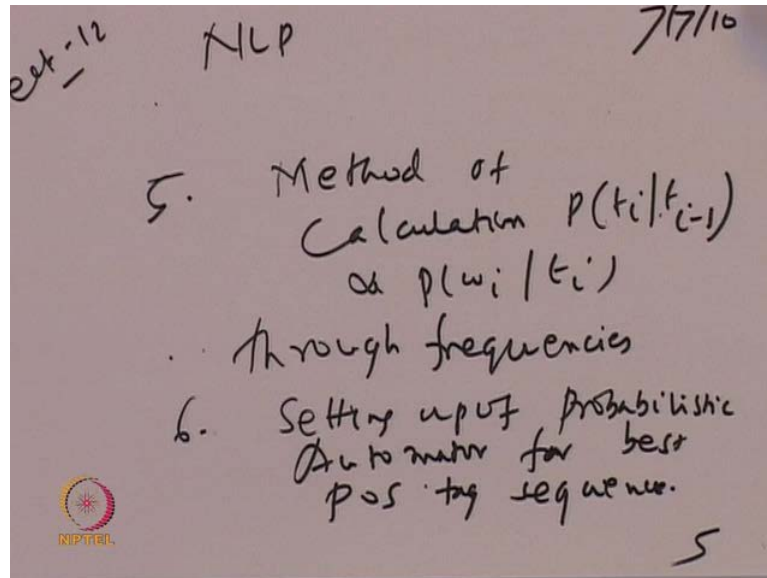 ect-12 NLP 7/7/10
5. Method of
Calculation P(ti|ti-1)
& P(wi|ti)
through frequencies
6. Setting up of Probabilistic
Automator for best
POS tag sequence.
NPTEL
5